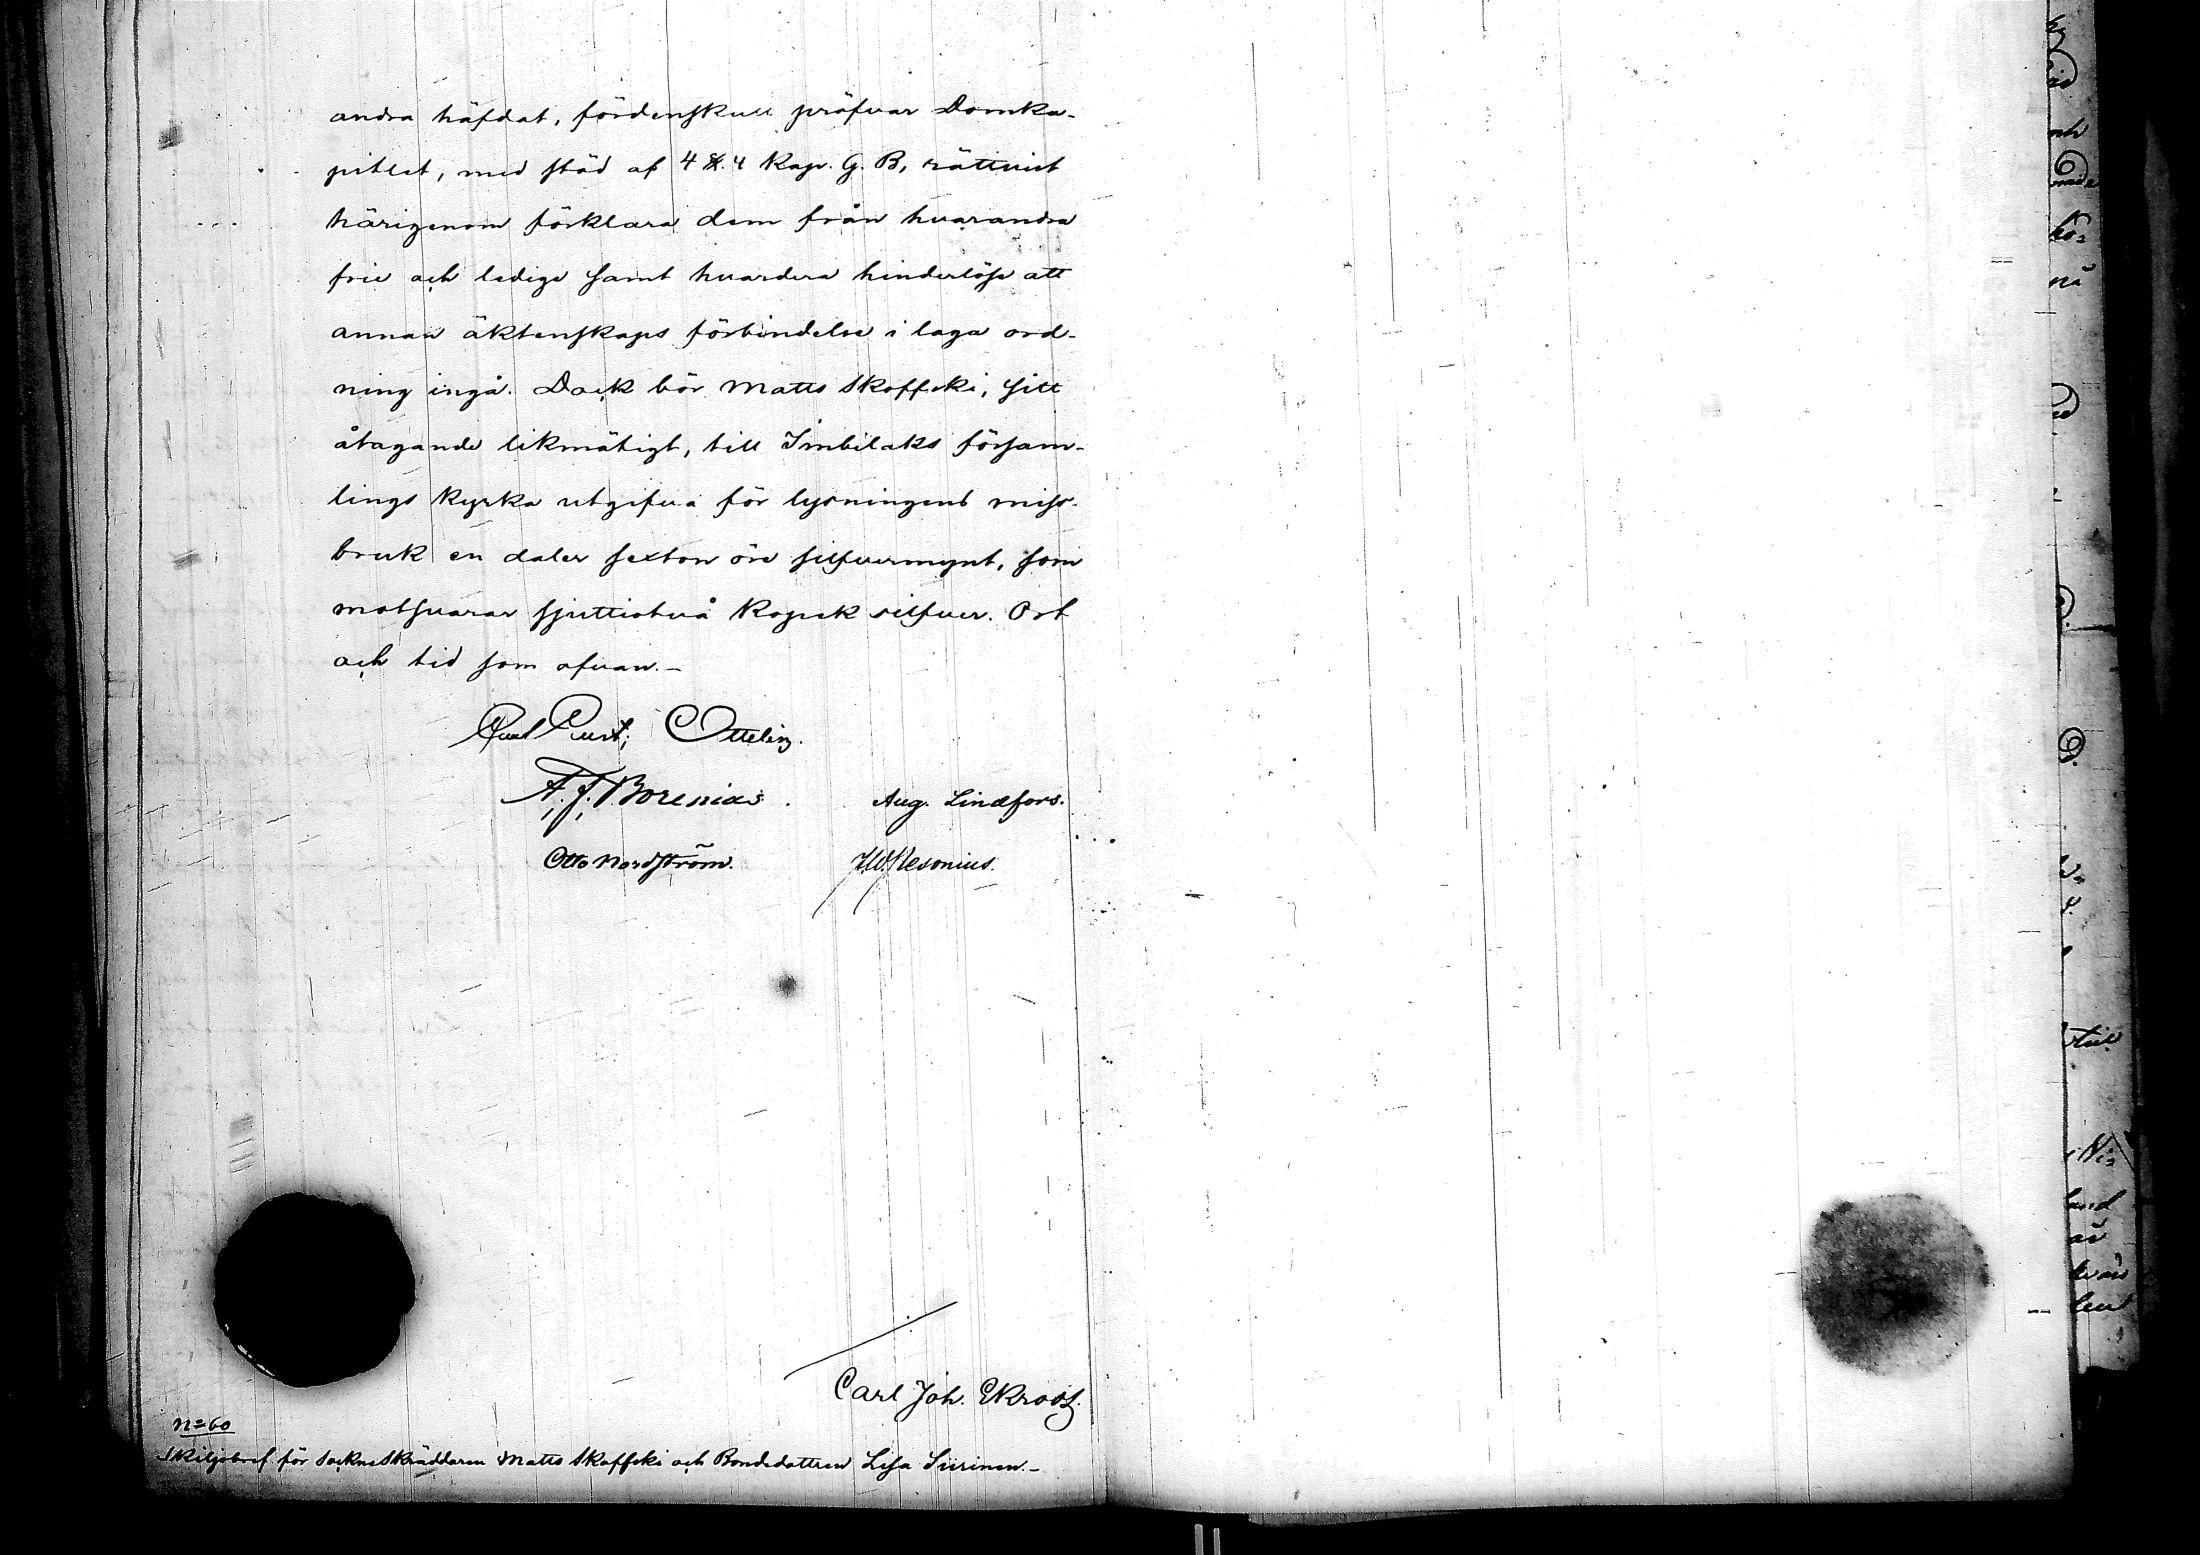 andra häfdat, fördenskull pröfvar Domka-
pitlet, med stöd af 4 §. 4 Kap. G. B, rättvist
härigenom förklara dem från hvarandra
frie och ledige samt hvardera hinderlöse att
annan äktenskaps förbindelse i laga ord-
ning ingå. Dock bör Matts Skoffeki, sitt
åtagande likmätigt, till Imbilaks försam-
lings Kyrka utgifva för lysningens miss-
bruk en daler sexton öre silfvermynt, som
motsvarar sjuttiotvå Kopek silfver. Ort
och tid som ofvan.-
Carl Gust; Ottelin.
A. J. Borenius. Aug. Lindfors.
Otto Nordström. Nesonius.
Carl Joh. Ekroos.
No 60
Skiljobref för SocknsSkräddaren Matts Skoffeki och Bondedottren Lisa Siirinen.-